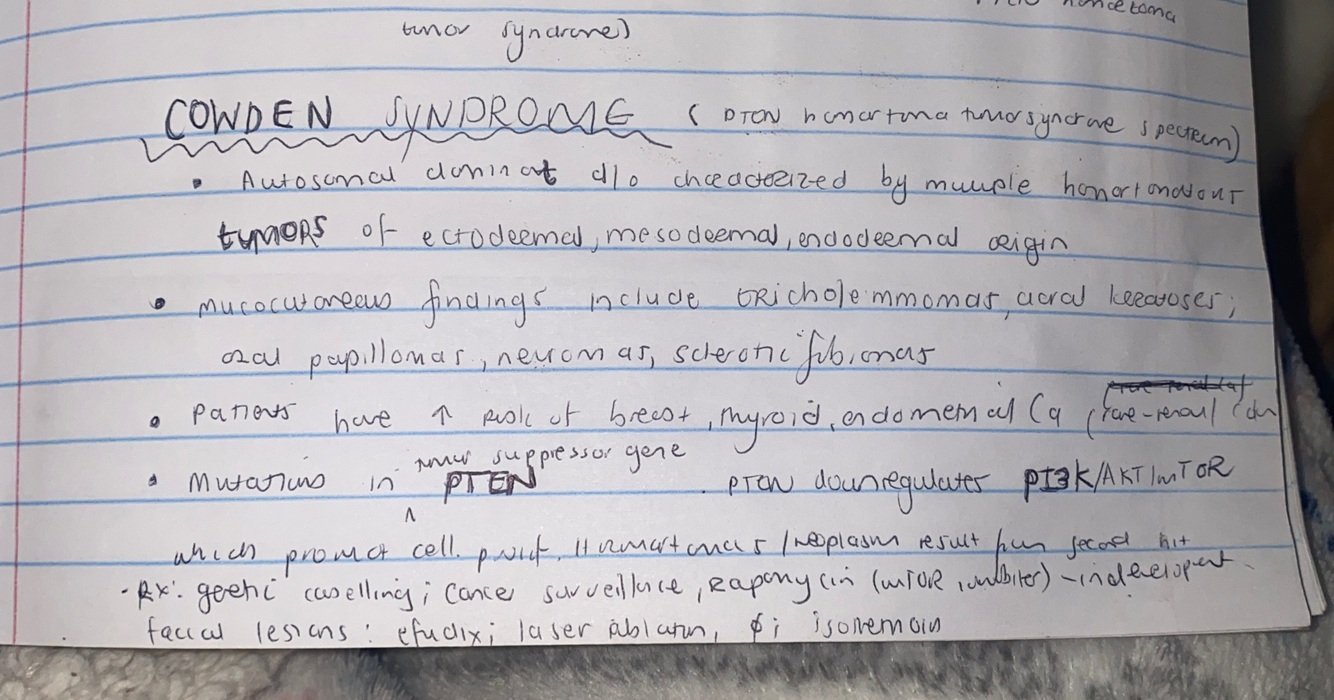 tumor syndrome)
COWDEN SYNDROME (PTEN hamartoma tumor syndrome spectrum)
• Autosomal dominat d/o characterized by multiple hamartomatous
tumors of ectodermal, mesodermal, endodermal origin
• mucocutaneous findings include trichole mmomas, acral keratoses;
oral papillomas, neuromas, sclerotic fibromas
• patients have ↑ risk of breast, thyroid, endometrial Ca (rare-renal/
• Mutations in tumor suppressor gene PTEN. PTEN downregulates PI3K/AKT/mTOR
which promot cell. Hamartomas/neoplasm result from second hit
• Rx: genetic counselling; Cancer surveillance, Rapamycin (mTOR inhibitor) - in development
facial lesions: efudix; laser ablation, isotretinoin